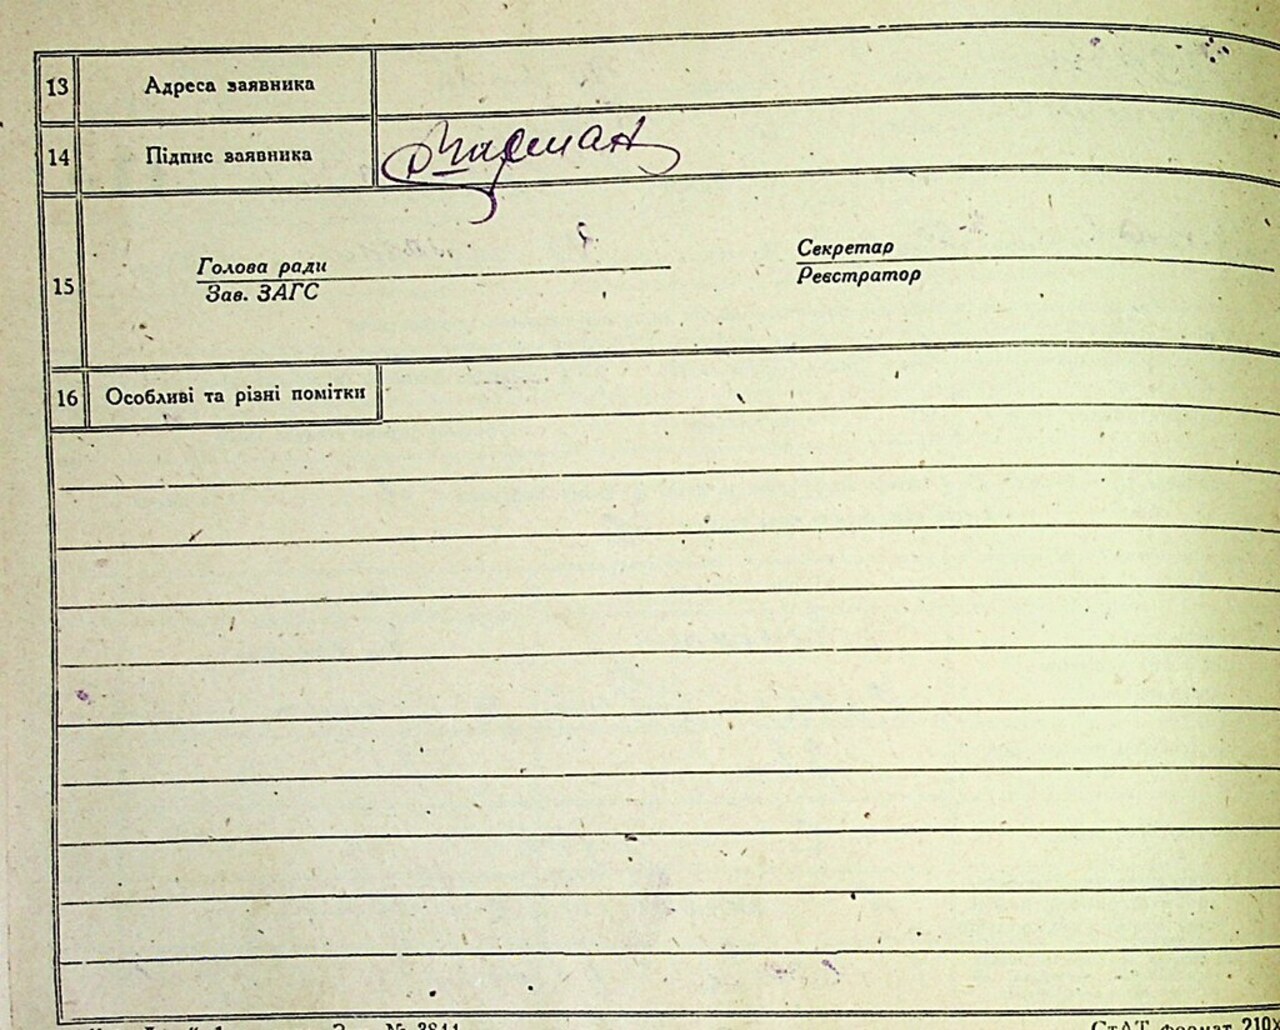 13 Адреса заявника
14 Підпис заявника
15
Голова ради
Зав. ЗАГС
Секретар
Реєстратор
16 Особливі та різні помітки
№ 3844
СтАТ формат 210×